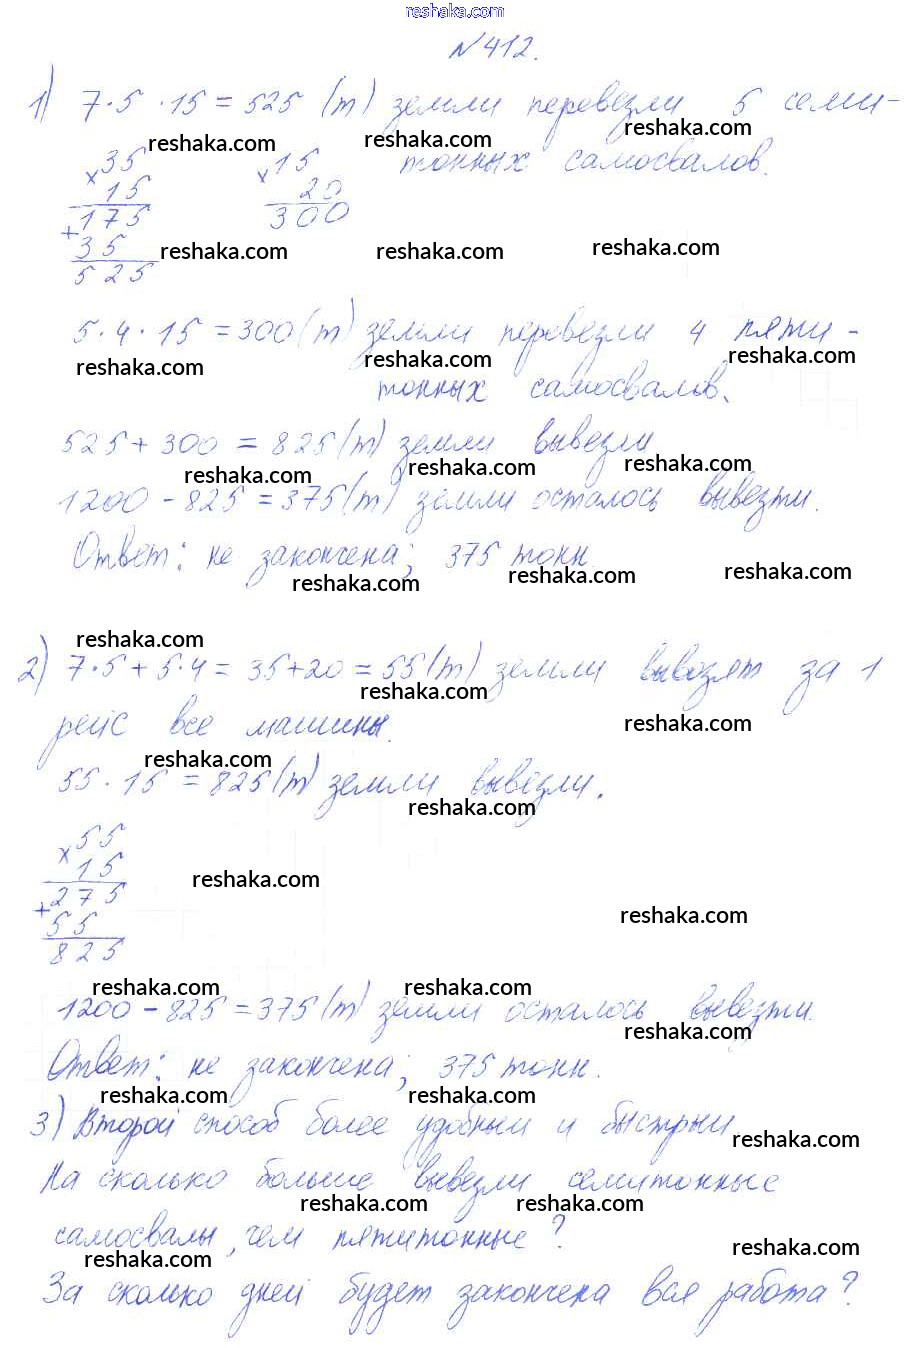 reshaka.com
№412.
1) 7·5·15=525 (т) земли перевезли 5 семи-
reshaka.com reshaka.com reshaka.com
×35 ×15 тонных самосвалов.
15 20
175 300
+
35
525
reshaka.com reshaka.com reshaka.com
5·4·15=300(т) земли перевезли 4 пяти-
reshaka.com reshaka.com reshaka.com
тонных самосвалов.
525+300=825(т) земли вывезли
reshaka.com reshaka.com reshaka.com
1200-825=375(т) земли осталось вывезти.
Ответ: не закончена; 375 тонн
reshaka.com reshaka.com reshaka.com
reshaka.com
2) 7·5+5·4=35+20=55(т) земли вывозят за 1
reshaka.com
рейс все машины.
reshaka.com
reshaka.com
55·15=825(т) земли вывезли.
reshaka.com
×55
15
275
+
55
825
reshaka.com
reshaka.com
reshaka.com reshaka.com
1200-825=375(т) земли осталось вывезти.
reshaka.com
Ответ: не закончена; 375 тонн.
reshaka.com reshaka.com
3) Второй способ более удобный и быстрый
reshaka.com
На сколько больше вывезли семитонные
reshaka.com reshaka.com
самосвалы, чем пятитонные?
reshaka.com reshaka.com
За сколько дней будет закончена вся работа?